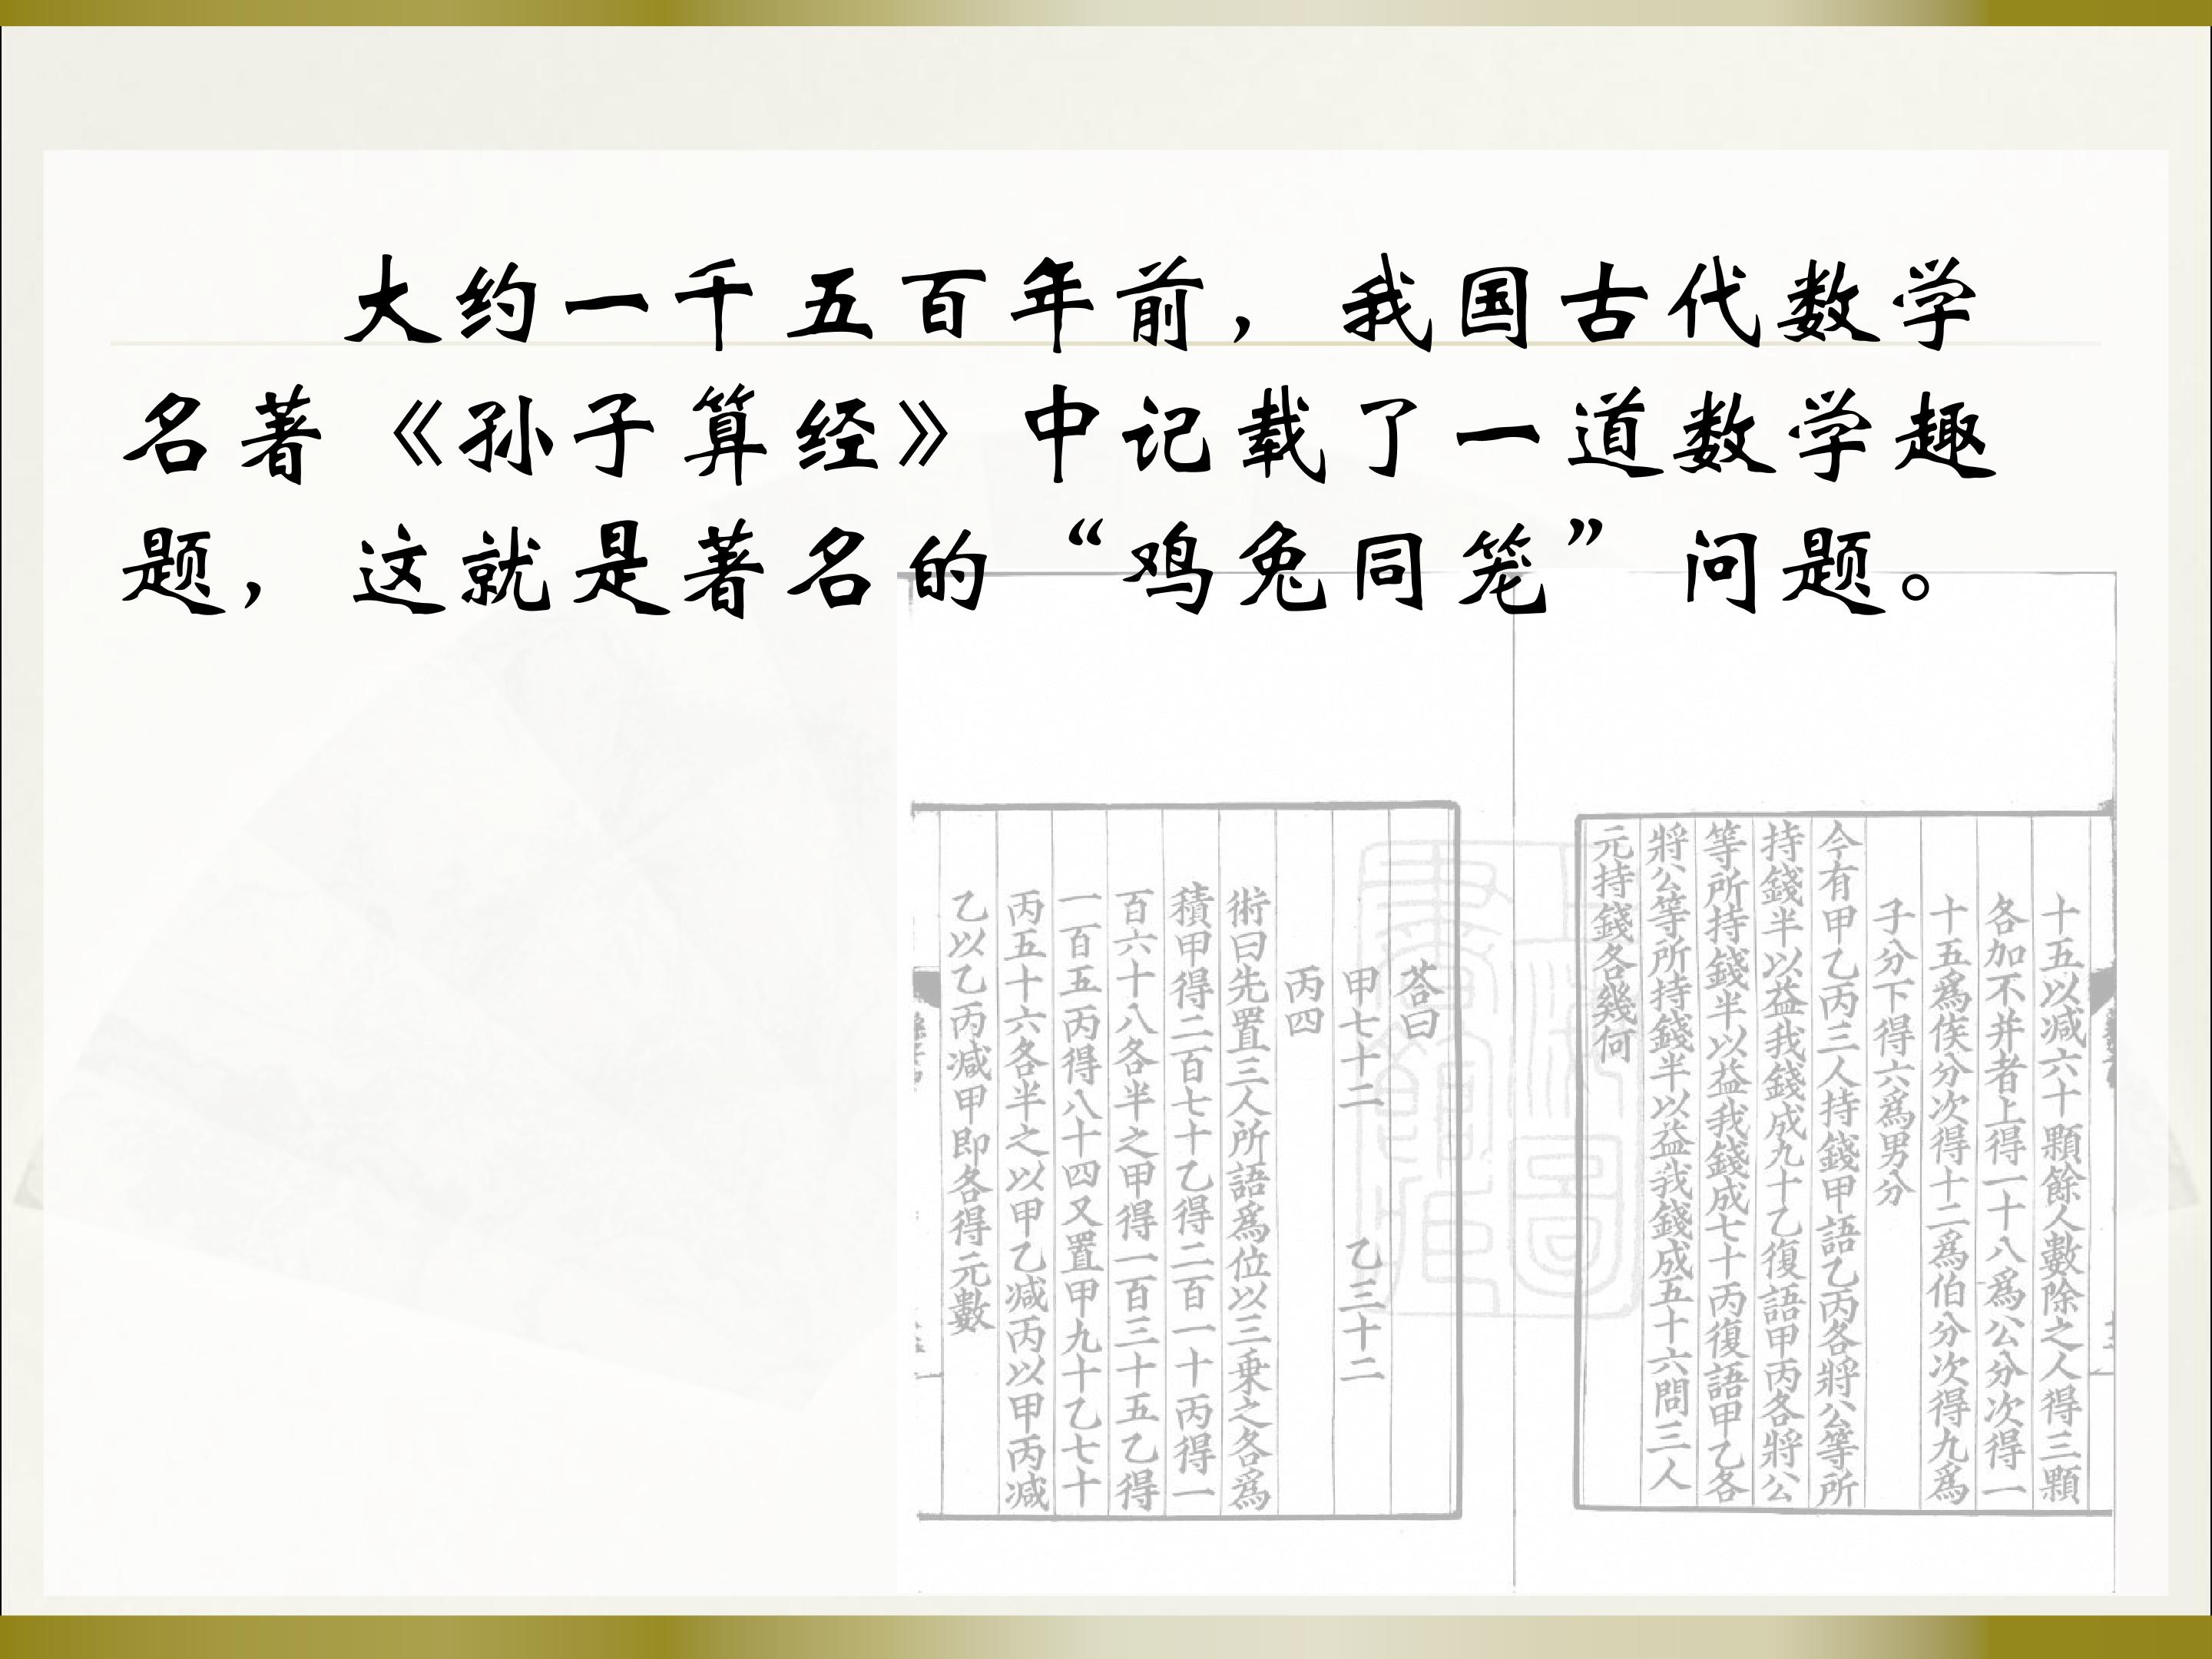 大约一千五百年前，我国古代数学
名著《孙子算经》中记载了一道数学趣
题，这就是著名的“鸡兔同笼”问题。
十五以减六十顆餘人數除之人得三顆
各加不并者上得一十八為公分次得一
十五為侯分次得十二為伯分次得九為
子分下得六為男分
今有甲乙丙三人持錢甲語乙丙各將公等所
持錢半以益我錢成九十乙復語甲丙各將公
等所持錢半以益我錢成七十丙復語甲乙各
將公等所持錢半以益我錢成五十六問三人
元持錢各幾何
荅曰
甲七十二 乙三十二
丙四
術曰先置三人所語為位以三乗之各為
積甲得二百七十乙得二百一十丙得一
百六十八各半之甲得一百三十五乙得
一百五丙得八十四又置甲九十乙七十
丙五十六各半之以甲乙減丙以甲丙減
乙以乙丙減甲即各得元數